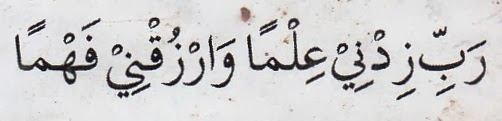 رَبِّ زِدْنِيْ عِلْمًا وَارْزُقْنِيْ فَهْمًا